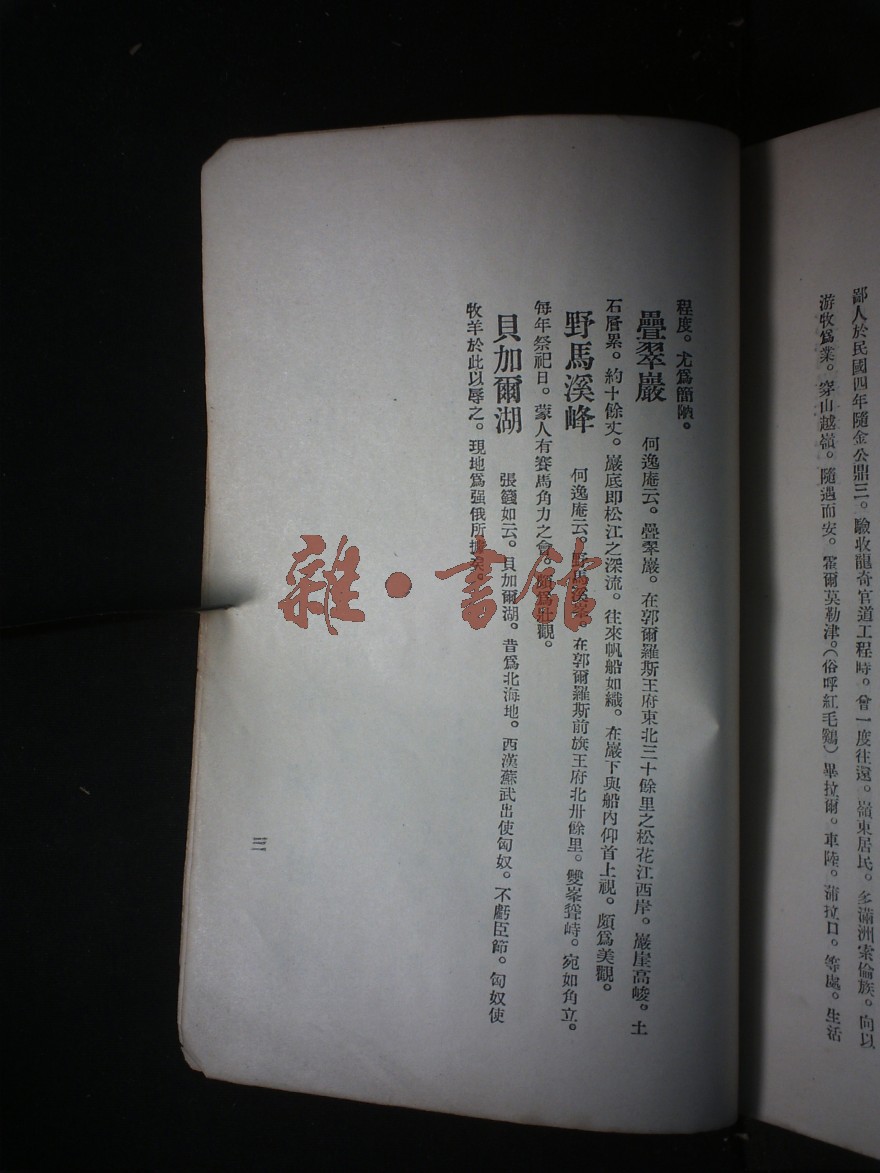 鄙人於民國四年隨金公鼎三。驗收龍奇官道工程時。曾一度往還。嶺東居民。多滿洲索倫族。向以
游牧爲業。穿山越嶺。隨遇而安。霍爾莫勒津。(俗呼紅毛鷄)畢拉爾。車陸。蒲拉口。等處。生活
程度。尤爲簡陋。
疊翠巖 何逸庵云。疊翠巖。在郭爾羅斯王府東北三十餘里之松花江西岸。巖崖高峻。土
石層累。約十餘丈。巖底即松江之深流。往來帆船如織。在巖下與船內仰首上視。頗爲美觀。
野馬溪峰 何逸庵云。野馬溪峯。在郭爾羅斯前旗王府北卅餘里。雙峯聳峙。宛如角立。
每年祭祀日。蒙人有賽馬角力之會。頗爲壯觀。
貝加爾湖 張籛如云。貝加爾湖。昔爲北海地。西漢蘇武出使匈奴。不虧臣節。匈奴使
牧羊於此以辱之。現地爲强俄所據矣。
三
雜·書館